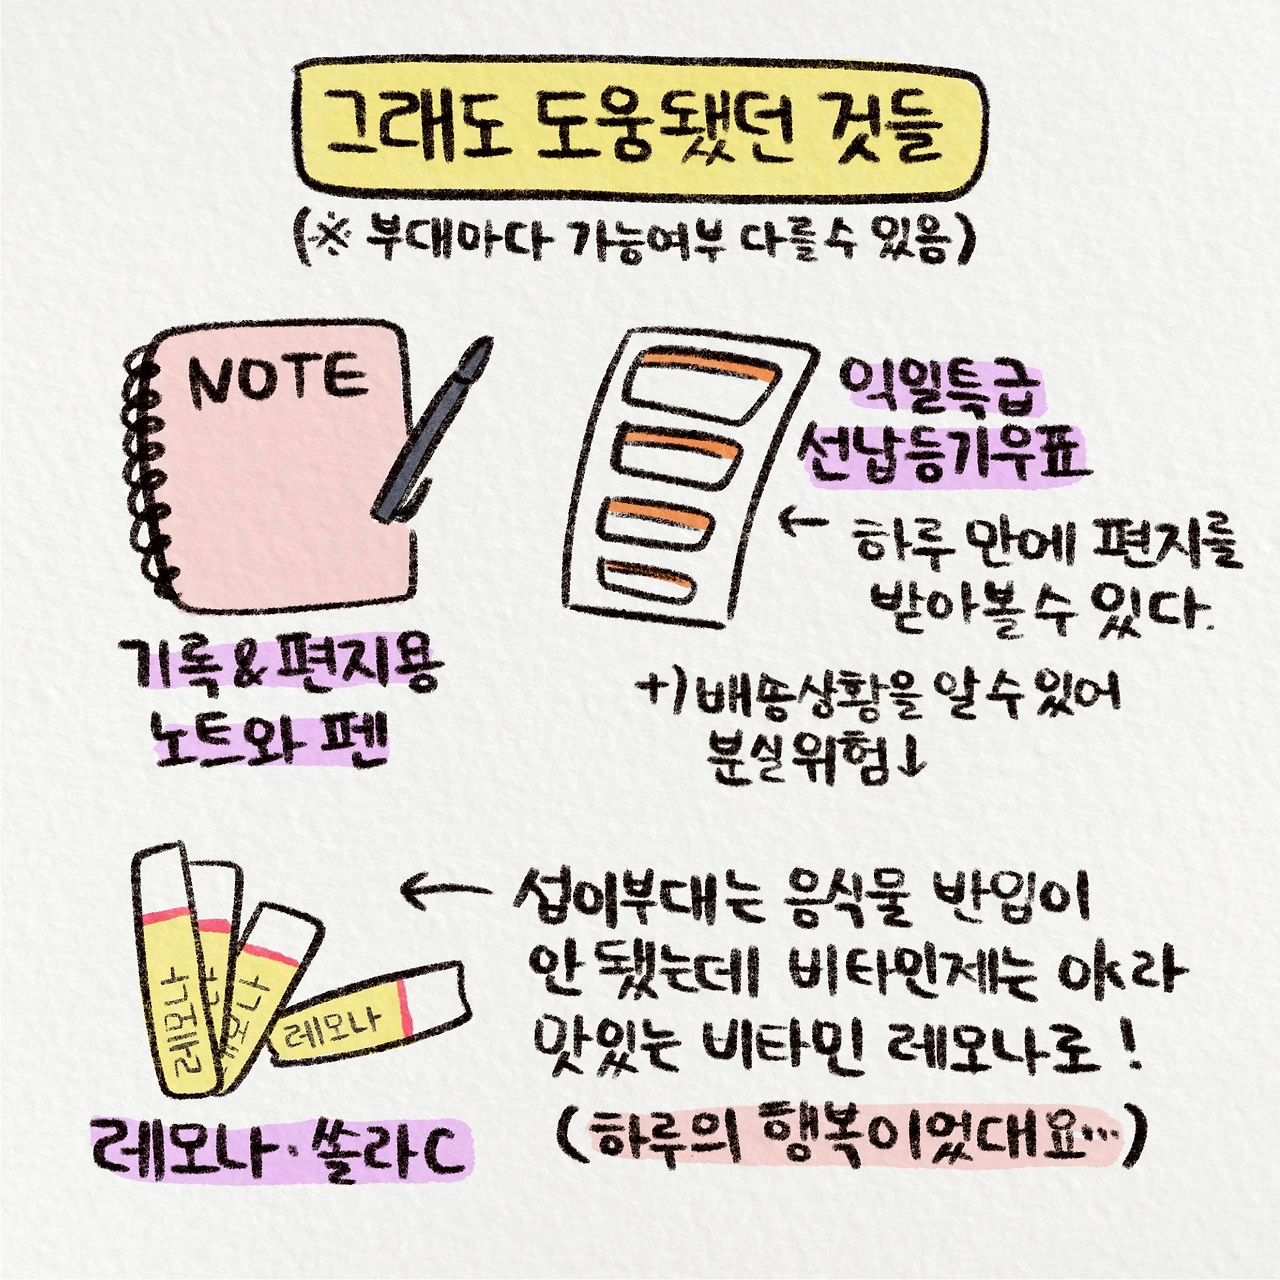 그래도 도움됐던 것들
(※ 부대마다 가능여부 다를수 있음)
NOTE
기록&편지용
노트와 펜
익일특급
선납등기우표
← 하루 만에 편지를
받아볼 수 있다.
+) 배송상황을 알 수 있어
분실위험↓
레모나
레모나
레모나
레모나
레모나·쏠라C
← 섭이부대는 음식물 반입이
안 됐는데 비타민제는 OK라
맛있는 비타민 레모나로!
(하루의 행복이었대요…)